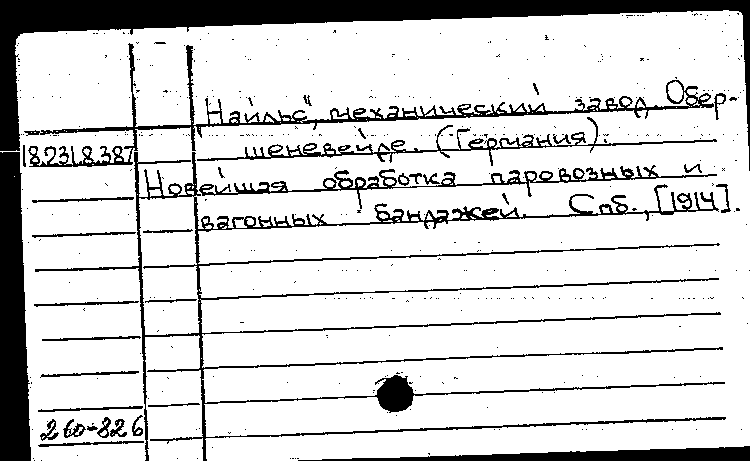 "Найльс", механический завод. Обер-
шеневейде. (Германия).
18.231.8.387
Новейшая обработка паровозных и
вагонных бандажей. Спб., [1914].
260-826